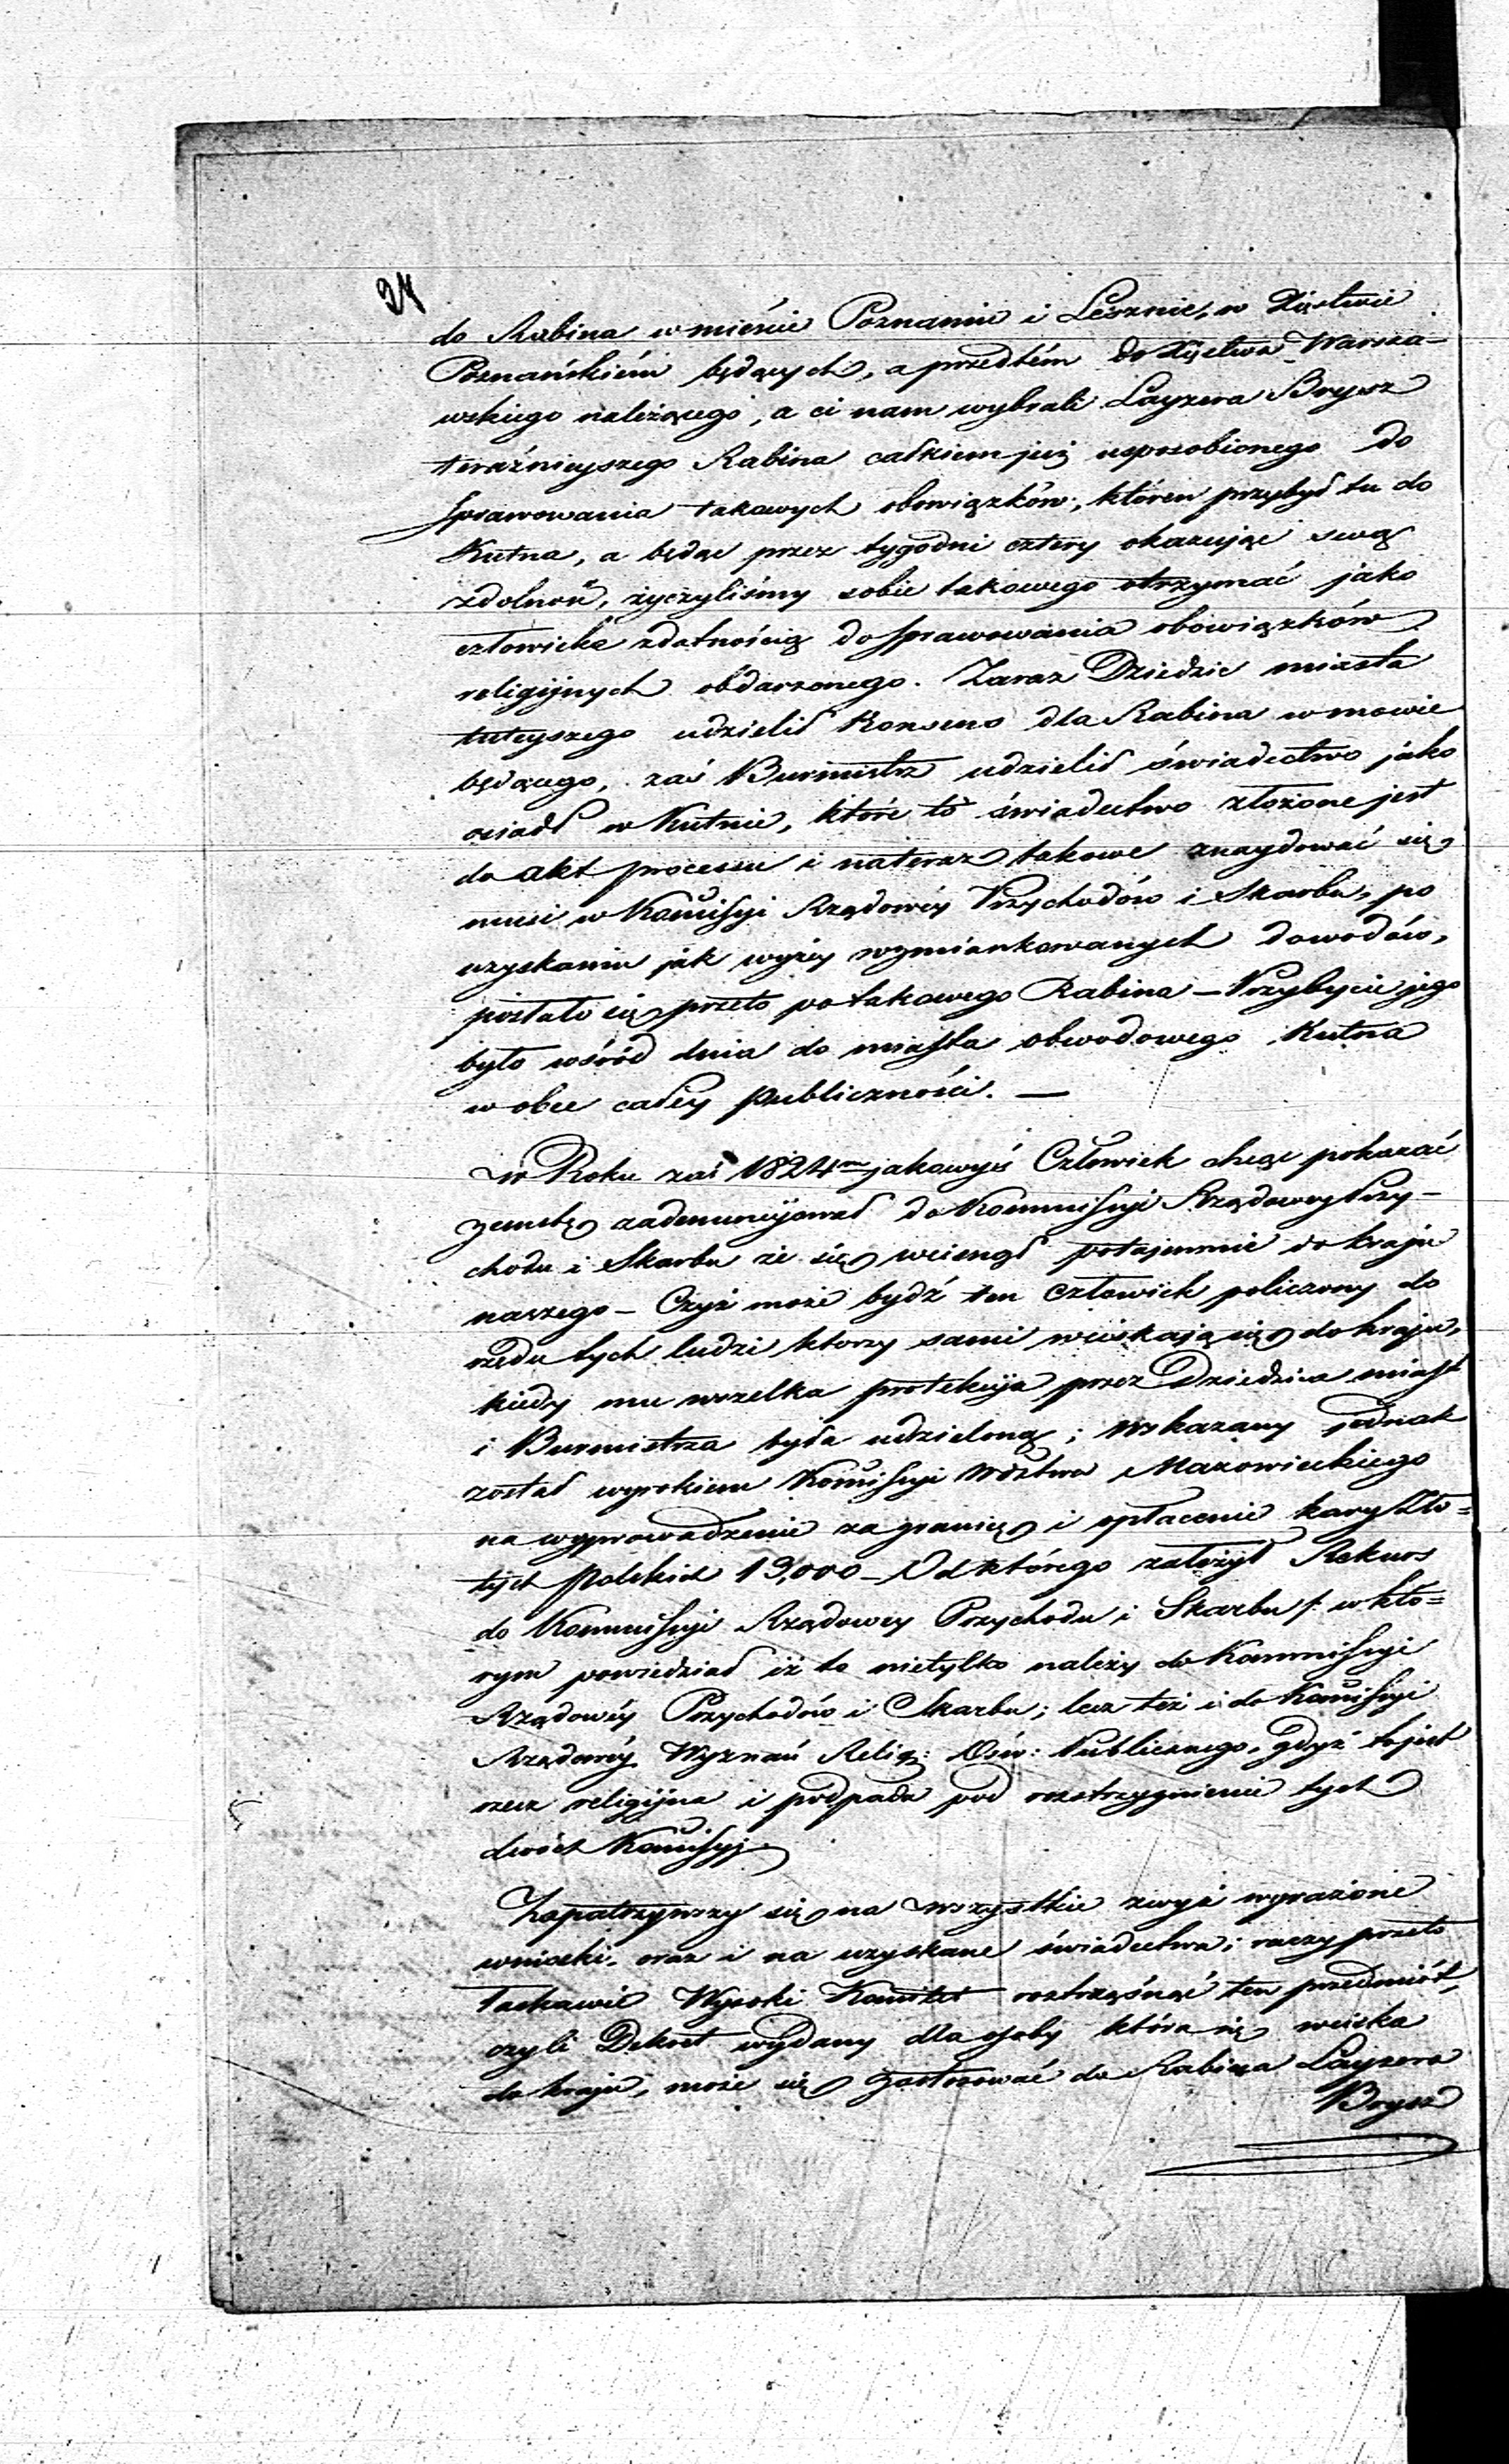 24
do Rabina w mieście Poznaniu i Lesznie, w Xięstwie
Poznańskiém będących, a przedtém do Xięstwa Warsza-
wskiego należącego, a ci nam wybrali Layzera Brysz
teraźnieyszego Rabina całkiem już usposobionego do
sprawowania takowych obowiązków, któren przybył tu do
Kutna, a będąc przez tygodni cztery okazując swą
zdolność, życzyliśmy sobie takowego otrzymać jako
człowieka zdatnością do sprawowania obowiązków
religijnych obdarzonego. Zaraz Dziedzic miasta
tuteyszego udzielił Konsens dla Rabina w mowie
będącego, zaś Burmistrz udzielił świadectwo jako
osiadł w Kutnie, które to świadectwo złożone jest
do akt processu i nateraz takowe znaydować się
musi w Kommissyi Rządowéy Przychodów i Skarbu, po
uzyskaniu jak wyżey wzmiankowanych dowodów,
posłało się przeto po takowego Rabina – Przybycie jego
było wśród dnia do miasta obwodowego Kutna
w obec całey Publiczności. —
w Roku zaś 1824m jakowyś Człowiek chcąc pokazać
zemstę zadenuncyował do Kommissyi Rządowey Przy-
chodu i Skarbu że się wcisnął potajemnie do kraju
naszego – Czyż może bydź ten Człowiek policzony do
rzędu tych ludzi ktorzy sami wciskają się do kraju,
kiedy mu wszelka protekcya przez Dziedzica miast
i Burmistrza była udzieloną; wskazany jednak
został wyrokiem Komissyi Wdztwa Mazowieckiego
na wyprowadzenie za granicę i opłacenie kary Zło=
tych Polskich 13,000 – Od którego założył Rekurs
do Kommissyi Rządowey Przychodu i Skarbu /: w któ=
rym powiedział iż to nietylko należy do Kommissyi
Rządowéy Przychodów i Skarbu; lecz też i do Komissyi
Rządowéy Wyznań Relig: Ośw: Publicznego, gdyż to jest
rzecz religijna i podpada pod rozstrzygnienie tych
dwóch Komissyj
Zapatrzywszy się na wszystkie zwyż wyrażone
wnioski, oraz i na uzyskane świadectwa; raczy przeto
łaskawie Wysoki Komitet roztrząsnąć ten przedmiot,
czyli Dekret wydany dla osoby która się wciska
do kraju, może się zastosować do Rabina Layzera
Brysz